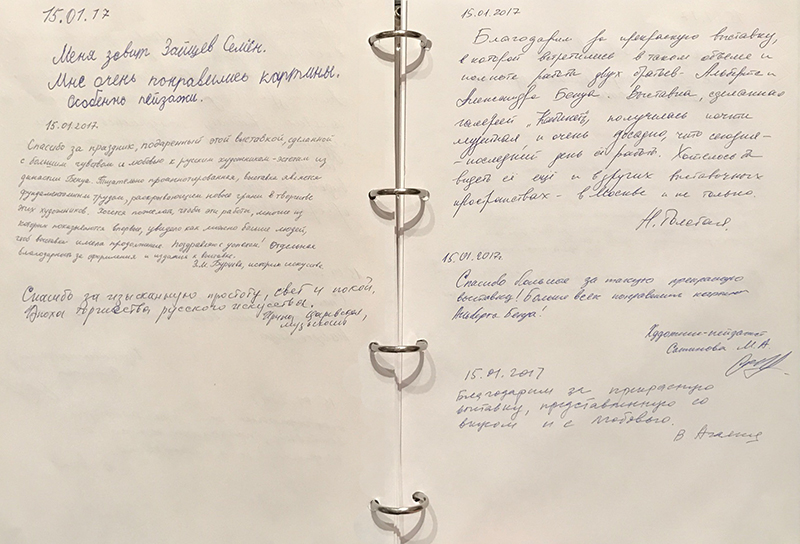 15.01.17
Меня зовут Зайцев Семён.
Мне очень понравились картины.
Особенно пейзажи.
15.01.2017.
Спасибо за праздник, подаренный этой выставкой, сделанной
с большим чувством и любовью к русским художникам-поэтам из
династии Бенуа. Тщательно проаннотированная, выставка является
фундаментальным трудом, раскрывающим новые грани в творчестве
этих художников. Хочется пожелать, чтобы эти работы, многие из
которых показываются впервые, увидело как можно больше людей,
чтоб выставка имела продолжение. Поздравляю с успехом! Отдельная
благодарность за оформление и издания к выставке.
З.М. историк искусства
Спасибо за изысканную простоту, свет и покой.
Эпоха торжества русского искусства.
Ирина
музыковед
15.01.2017
Благодарим за прекрасную выставку,
в которой встретились в таком объёме и
полноте работы двух братьев - Альберта и
Александра Бенуа. Выставка, сделанная
галереей получилась почти
музейная, и очень досадно, что сегодня -
- последний день её работы. Хотелось бы
видеть её ещё и в других выставочных
пространствах - в Москве и не только.
Н. Толстая.
15.01.2017г.
Спасибо большое за такую прекрасную
выставку! Больше всех понравились
Альберта Бенуа!
Художник-пейзажист
М.А
15.01.2017
Благодарим за прекрасную
выставку, представленную со
вкусом и с любовью.
В